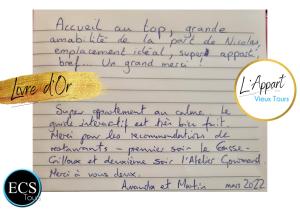 Accueil au top, grande
amabilité de la part de Nicolas,
emplacement idéal, super appart,
bref... Un grand merci !
Livre d'Or
L'Appart
Vieux Tours
Super appartement au calme. Le
guide interactif est très bien fait.
Merci pour les recommandations de
restaurants - premier soir le Casse-
Cailloux et deuxième soir l'Atelier Gourmand
Merci à vous deux.
Amandra et Martin mars 2022
ECS
Tours